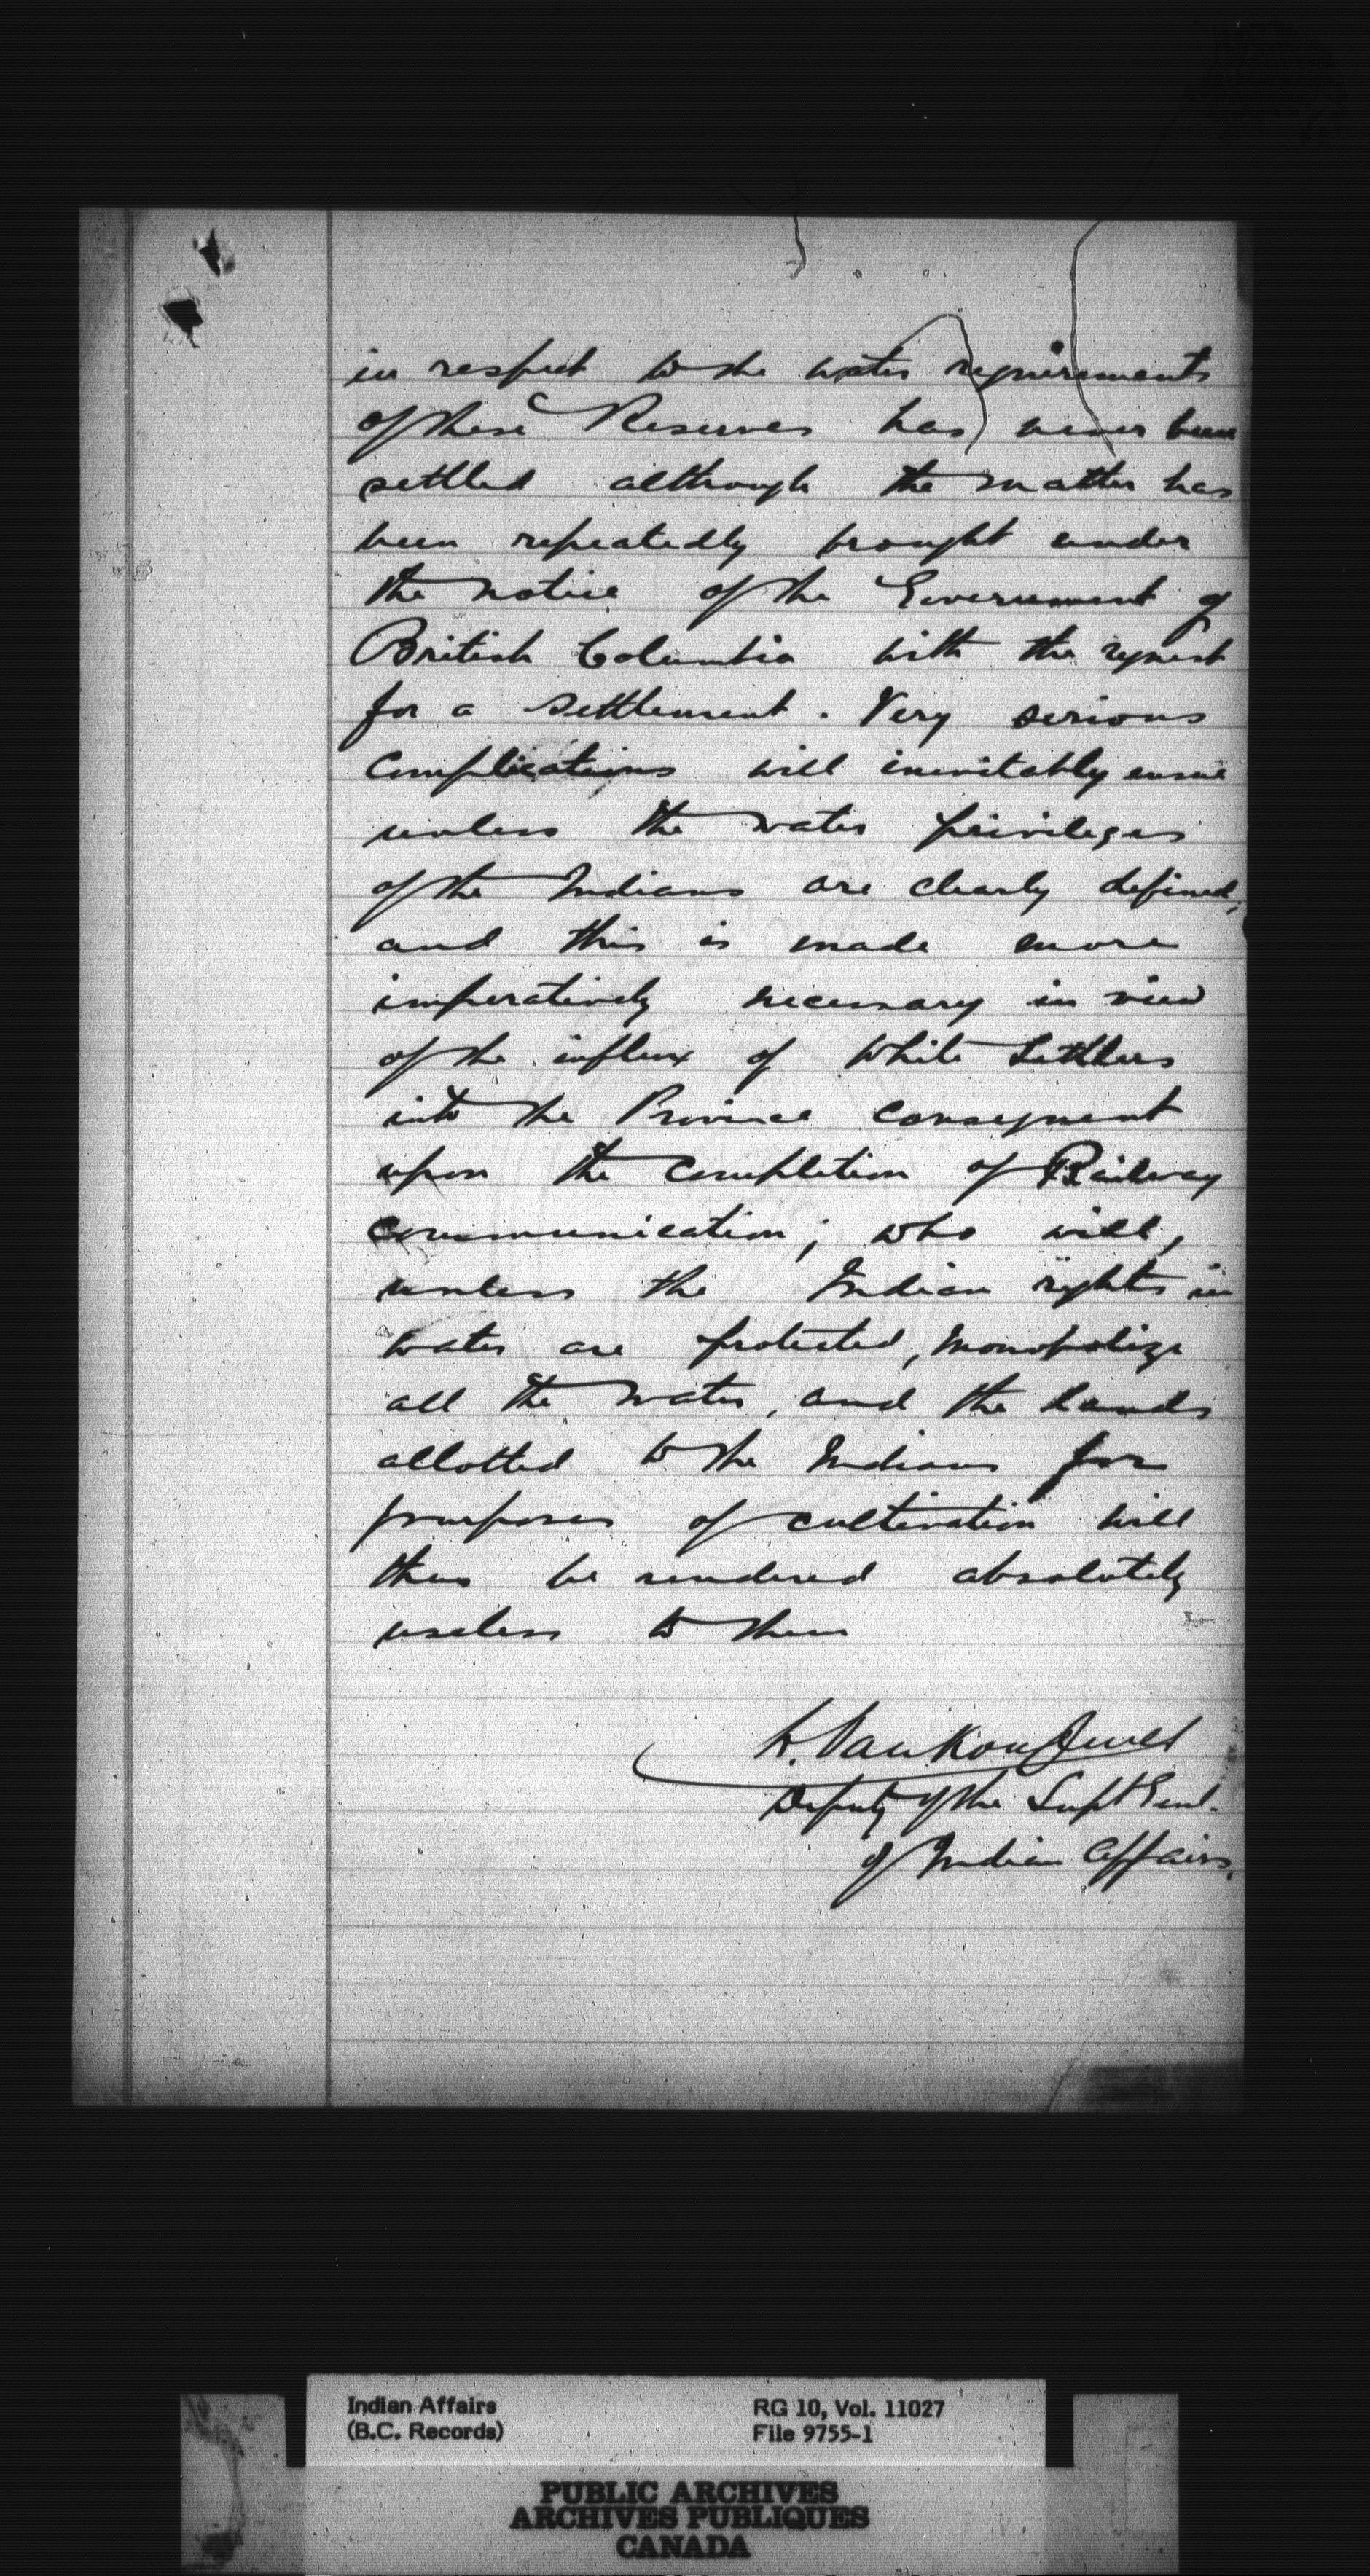 in respect to the water requirements
of these Reserves has never been
settled although the matter has
been repeatedly brought under
the notice of the Government of
British Columbia with the request
for a settlement. Very serious
complications will inevitably ensue
unless the water privileges
of the Indians are clearly defined,
and this is made more
imperatively necessary in view
of the influx of White Settlers
into the Province consequent
upon the completion of Railway
communication; who will,
unless the Indian rights in
water are protected, monopolize
all the water, and the Lands
allotted to the Indians for
purposes of cultivation will
thus be rendered absolutely
useless to them
L. VanKoughnet
Deputy of the Supt Genl.
of Indian Affairs.
Indian Affairs
(B.C. Records)
RG 10, Vol. 11027
File 9755-1
PUBLIC ARCHIVES
ARCHIVES PUBLIQUES
CANADA